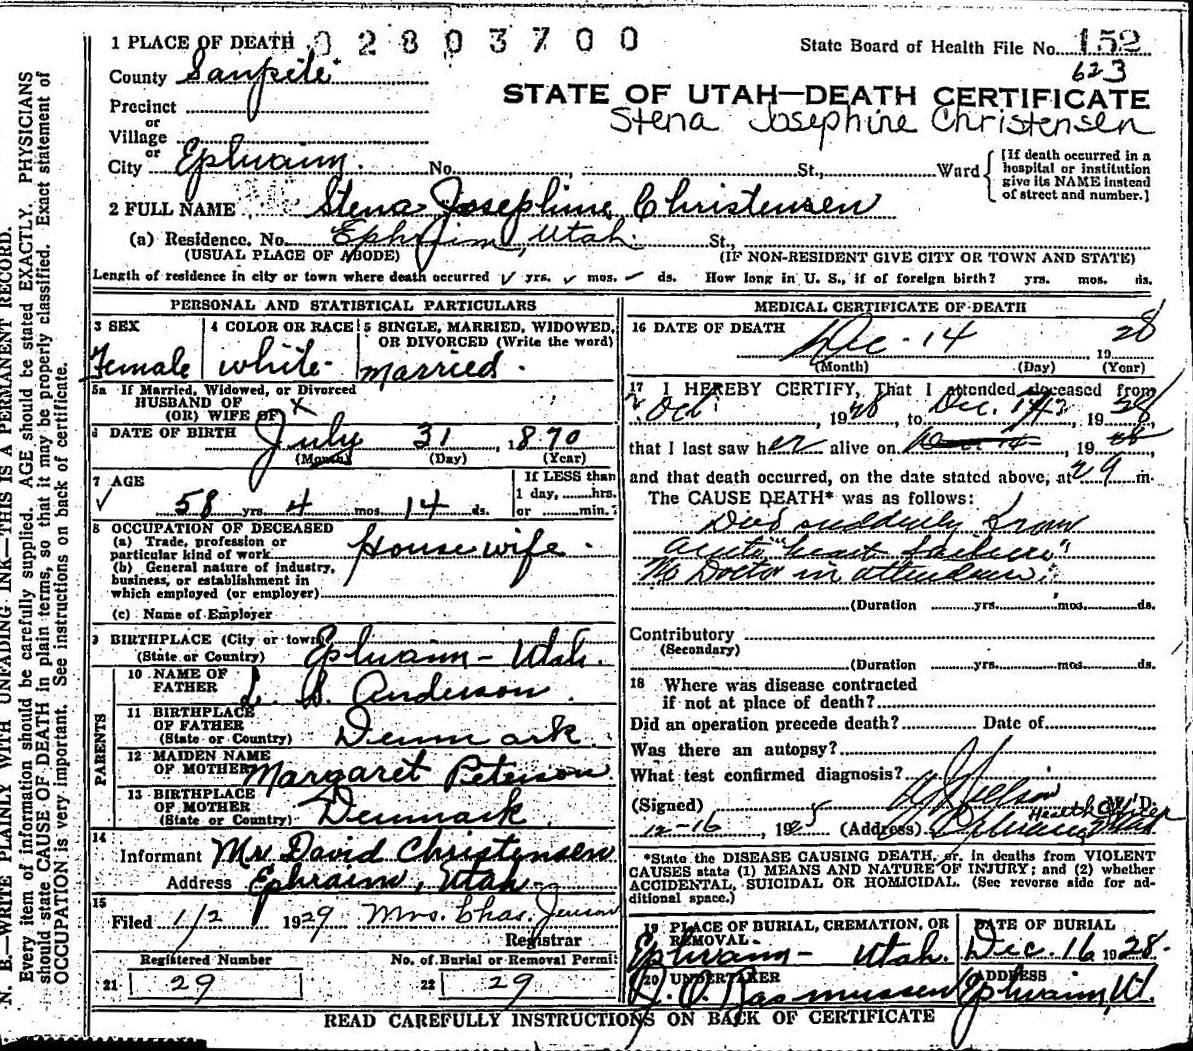 1 PLACE OF DEATH 0 2 8 0 3 7 0 0 State Board of Health File No. 152
County Sanpete 623
Precinct
STATE OF UTAH—DEATH CERTIFICATE
or
Stena Josephine Christensen
Village
or
City Ephraim. No. St., Ward [If death occurred in a hospital or institution give its NAME instead of street and number.]
2 FULL NAME Stena Josephine Christensen
(a) Residence. No. Ephraim, Utah. St.,
(USUAL PLACE OF ABODE) (IF NON-RESIDENT GIVE CITY OR TOWN AND STATE)
Length of residence in city or town where death occurred yrs. mos. ds. How long in U. S., if of foreign birth? yrs. mos. ds.
PERSONAL AND STATISTICAL PARTICULARS
3 SEX Female
4 COLOR OR RACE white
5 SINGLE, MARRIED, WIDOWED, OR DIVORCED (Write the word) married.
5a If Married, Widowed, or Divorced
HUSBAND OF
(OR) WIFE OF x
6 DATE OF BIRTH July 31 1870
(Month) (Day) (Year)
7 AGE 58 yrs. 4 mos. 14 ds.
If LESS than
1 day, hrs.
or min.?
8 OCCUPATION OF DECEASED
(a) Trade, profession or
particular kind of work Housewife.
(b) General nature of industry,
business, or establishment in
which employed (or employer)
(c) Name of Employer
9 BIRTHPLACE (City or town)
(State or Country) Ephraim - Utah.
PARENTS
10 NAME OF
FATHER L. S. Anderson.
11 BIRTHPLACE
OF FATHER
(State or Country) Denmark.
12 MAIDEN NAME
OF MOTHER Margaret Peterson
13 BIRTHPLACE
OF MOTHER
(State or Country) Denmark.
14
Informant Mr David Christensen
Address Ephraim, Utah
15
Filed 1/2 1929 Mrs. Chas. Jenson
Registrar
Registered Number No. of Burial or Removal Permit
21 29 22 29
MEDICAL CERTIFICATE OF DEATH
16 DATE OF DEATH
Dec - 14, 1928
(Month) (Day) (Year)
17 I HEREBY CERTIFY, That I attended deceased from
Oct. 1928 to Dec. 1928,
that I last saw her alive on 19
and that death occurred, on the date stated above, at m.
The CAUSE DEATH* was as follows:
Died suddenly from
acute "heart failure"
No Doctor in attendance.
(Duration yrs. mos. ds.
Contributory
(Secondary)
(Duration yrs. mos. ds.
18 Where was disease contracted
if not at place of death?
Did an operation precede death? Date of
Was there an autopsy?
What test confirmed diagnosis?
(Signed) Nelson M. D.
Health Officer
12-16, 19 (Address) Ephraim, Utah
*State the DISEASE CAUSING DEATH, or, in deaths from VIOLENT
CAUSES state (1) MEANS AND NATURE OF INJURY; and (2) whether
ACCIDENTAL, SUICIDAL OR HOMICIDAL. (See reverse side for ad-
ditional space.)
19 PLACE OF BURIAL, CREMATION, OR REMOVAL Ephraim - Utah.
DATE OF BURIAL Dec. 16 1928.
20 UNDERTAKER Rasmussen
ADDRESS Ephraim, Ut.
READ CAREFULLY INSTRUCTIONS ON BACK OF CERTIFICATE
N. B.—WRITE PLAINLY WITH UNFADING INK—THIS IS A PERMANENT RECORD.
Every item of information should be carefully supplied. AGE should be stated EXACTLY. PHYSICIANS
should state CAUSE OF DEATH in plain terms, so that it may be properly classified. Exact statement of
OCCUPATION is very important. See instructions on back of certificate.